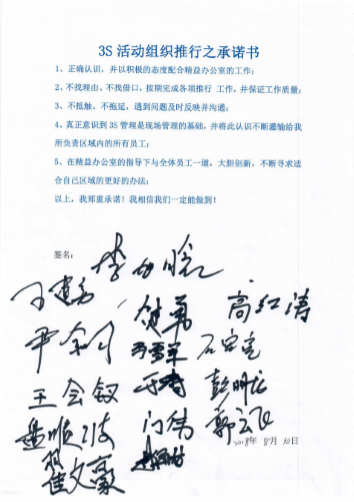 3S活动组织推行之承诺书
1、正确认识，并以积极的态度配合精益办公室的工作；
2、不找理由、不找借口，按期完成各项推行 工作，并保证工作质量；
3、不抵触、不拖延，遇到问题及时反映并沟通；
4、真正意识到 3S 管理是现场管理的基础，并将此认识不断灌输给我
所负责区域内的所有员工；
5、在精益办公室的指导下与全体员工一道，大胆创新，不断寻求适
合自己区域的更好的办法；
以上，我郑重承诺！我相信我们一定能做到！
签名：
高红涛
王会钗 彭明龙
门伟 郭云飞
2018年 8月 10日
翟文豪